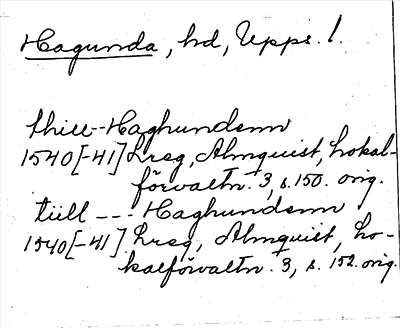 Hagunda, hd, Upps. l.
thill -- Haghundenn
1540[-41] Lreg, Almquist, Lokal-
förvaltn. 3, s. 150. orig.
till --- Haghundenn
1540[-41] Lreg, Almquist, Lo-
kalförvaltn. 3, s. 152. orig.